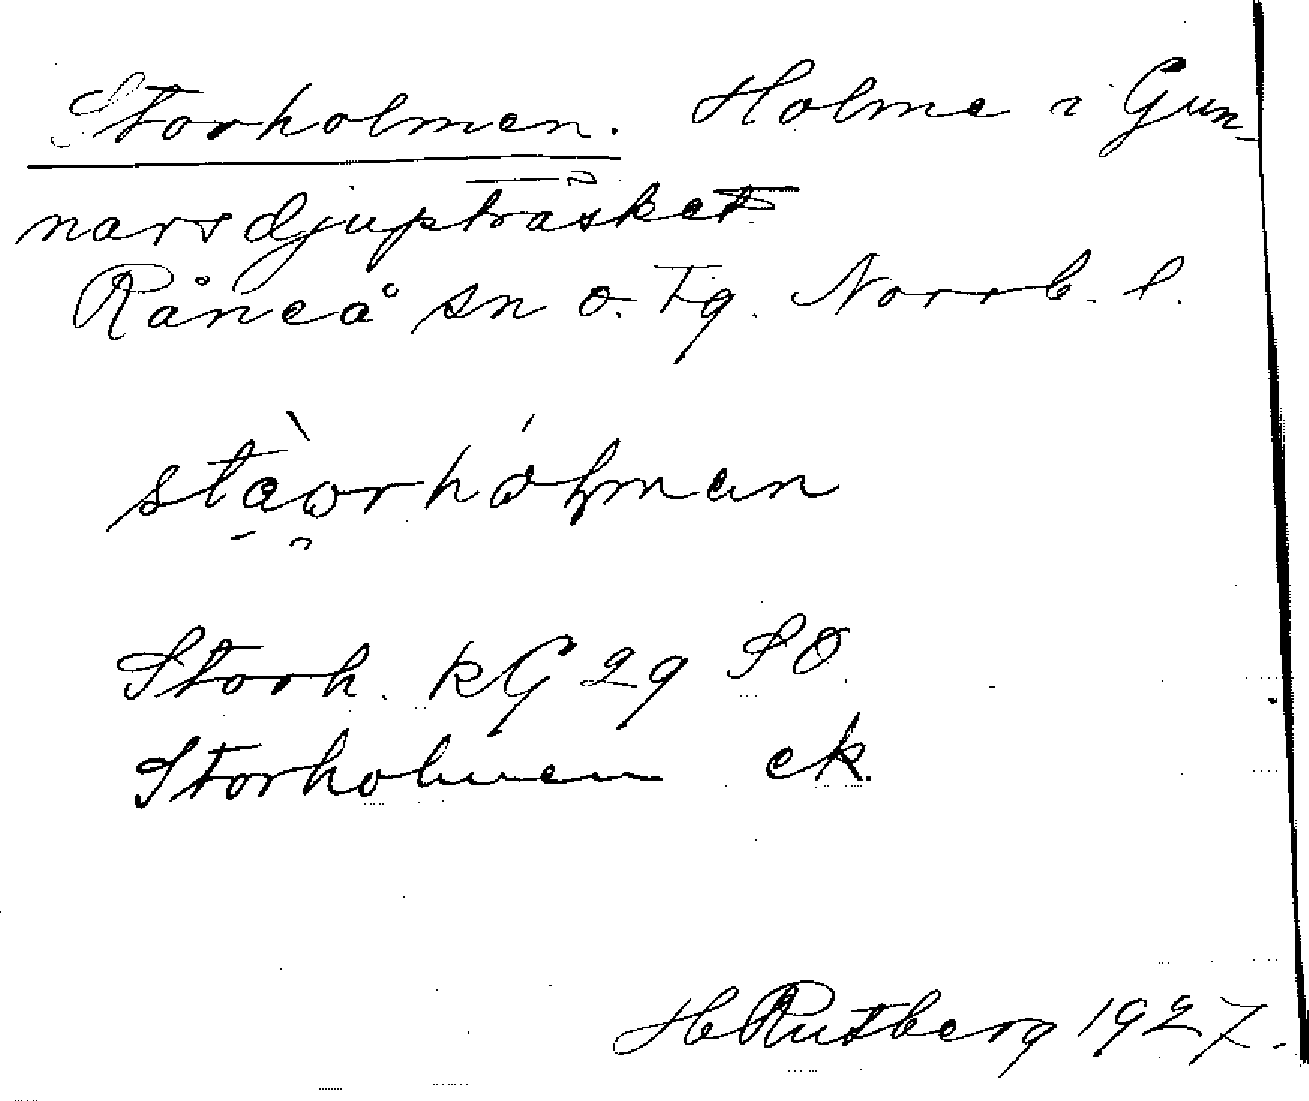 Storholmen. Holme i Gun-
narsdjupträsket
Råneå sn o. tg. Norrb. l.
Storh. kG 29 SO.
Storholmen ek.
H Rutberg 1927.